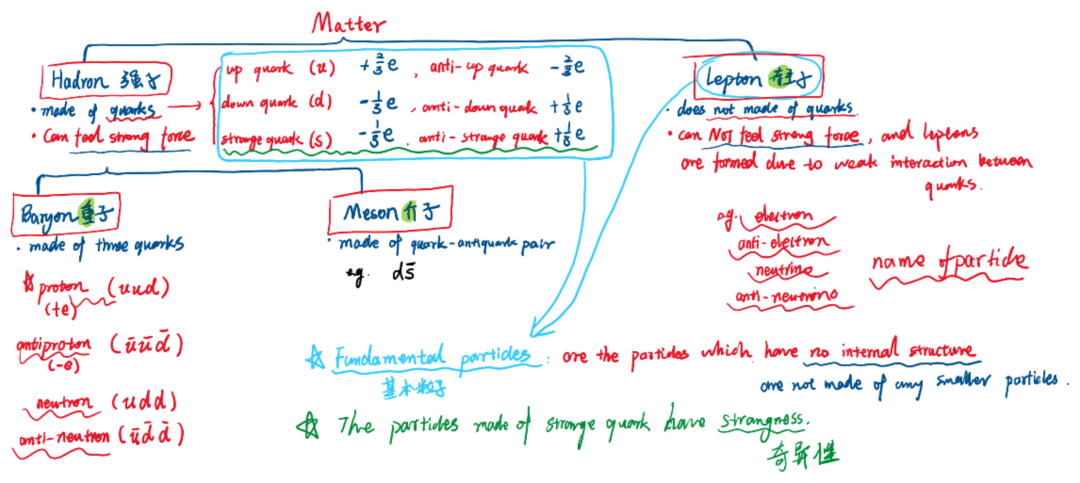 Matter
Hadron 强子
• made of quarks
• can feel strong force
up quark (u) +2/3e , anti-up quark -2/3e
down quark (d) -1/3e , anti-down quark +1/3e
strange quark (s) -1/3e , anti-strange quark +1/3e
Lepton 轻子
• does not made of quarks
• can Not feel strong force, and leptons
are formed due to weak interaction between
quarks.
eg. electron
anti-electron
neutrino
anti-neutrino
name of particle
Baryon 重子
• made of three quarks
☆ proton (uud)
(+e)
antiproton (ūūd̄)
(-e)
neutron (udd)
anti-neutron (ūd̄d̄)
Meson 介子
• made of quark-antiquark pair
eg. ds̄
☆ Fundamental particles : are the particles which have no internal structure
基本粒子
are not made of any smaller particles.
☆ The particles made of strange quark have strangness.
奇异性